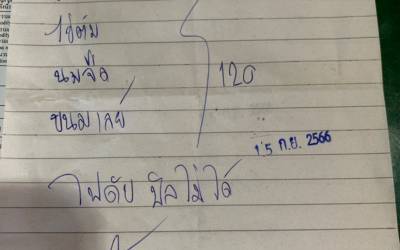 ไข่ต้ม
นมจืด 120
ขนมเลย์
15 ก.ย. 2566
ไฟดับ บิลไม่ได้